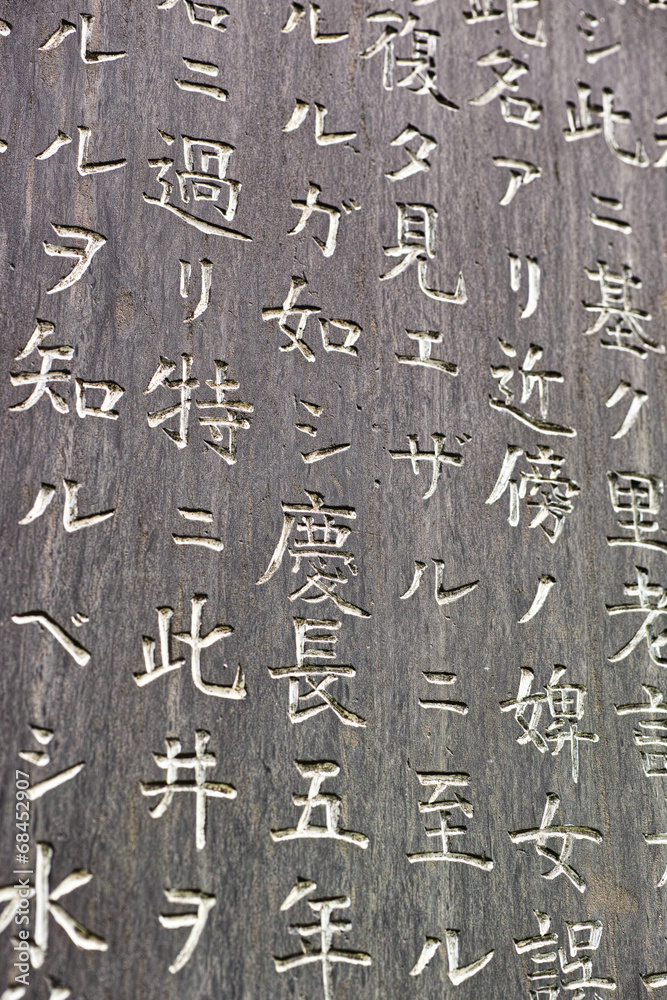 シ此ニ基ク里老
此名アリ近傍ノ婢女誤
復タ見エザルニ至ル
ルルガ如シ慶長五年
ニ過リ特ニ此井ヲ
ルルヲ知ルベシ水
Adobe Stock | #68452907